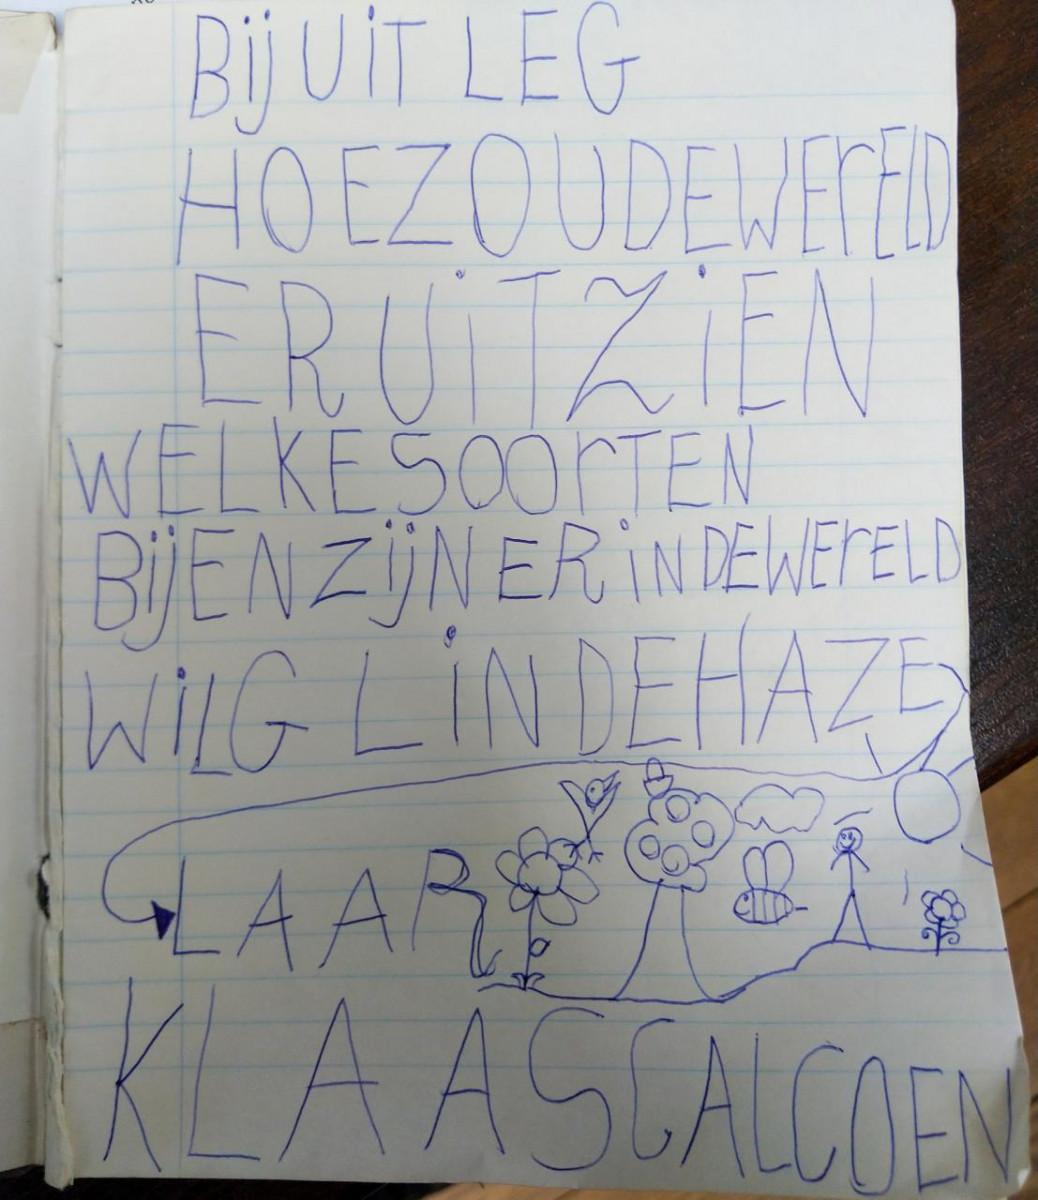 BijUiT LEG
HOEZOUDEWErELD
ERUiTZiEN
WELKESOOrTEN
BijENZijNERiNDEWErELD
WiLG LiNDEHAZE
LAAR
KLAASCALCOEN